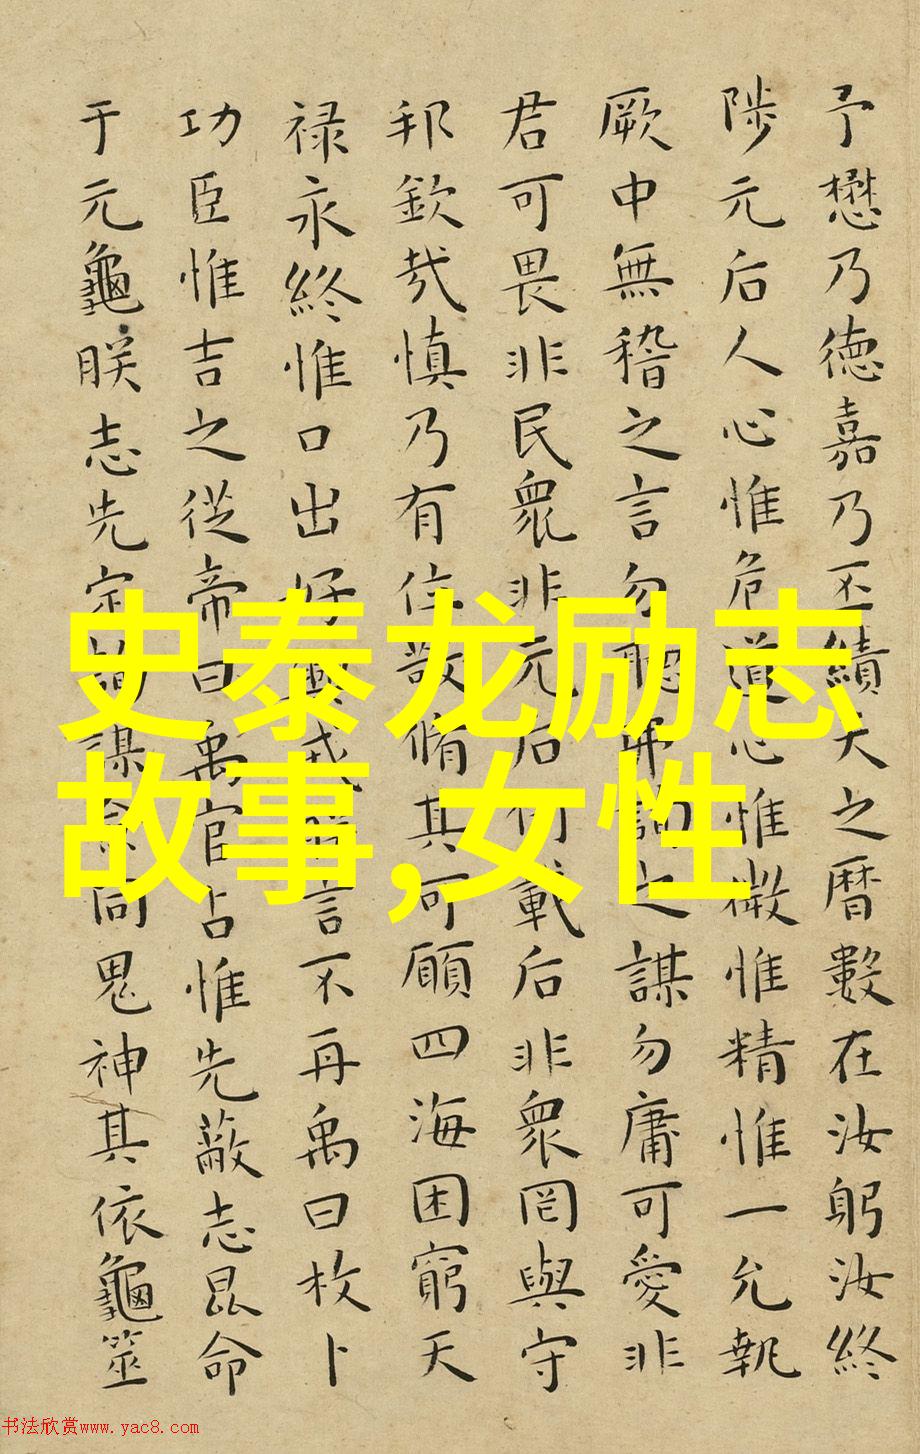 予懋乃德嘉乃丕績天之曆數在汝躬汝終
陟元后人心惟危道心惟微惟精惟一允執
厥中無稽之言勿聽弗詢之謀勿庸可愛非
君可畏非民衆非元后何戴后非衆罔與守
邦欽哉慎乃有位敬脩其可願四海困窮天
禄永終惟口出好興戎朕言不再禹曰枚卜
功臣惟吉之從帝曰禹官占惟先蔽志昆命
于元龜朕志先定詢謀僉同鬼神其依龜筮
史泰龙励志
故事,女性
书法欣赏www.yac8.com